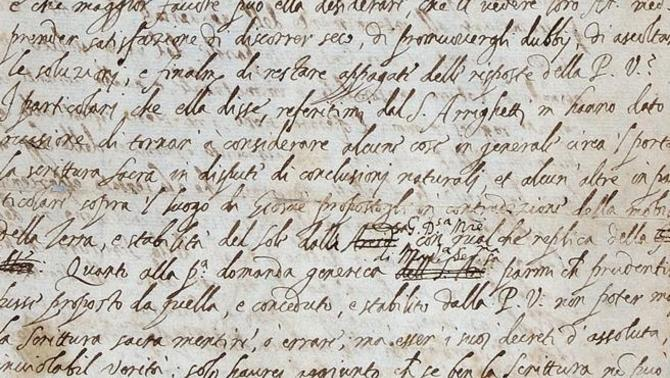 e che maggior favore può ella desiderare che il vedere loro
prender satisfazione di discorrer seco, di promuovergli dubbij, di ascoltar
le soluzioni, e finalm. di restare appagate delle risposte della P. V.
I particolari che ella disse, referitimi dal S. Arrighetti m hanno dato
di tornar a considerare alcune cose in generale circa 'l porta
la scrittura sacra in dispute di conclusioni naturali, et alcun' altre in pa
ticolare sopra 'l luogo di propostogli in contradizione della
della Terra, e stabilità del Sole dalla G. D.sa M.re con qualche replica della
di
Quanto alla p.a domanda generica parmi ch prudentis
proposto da quella, e conceduto, e stabilito dalla P. V. non poter mai
la Scrittura sacra mentire, o errare, ma esser' i suoi decreti d'assoluta
inviolabil verità: solo haurei aggiunto ch se ben la Scrittura